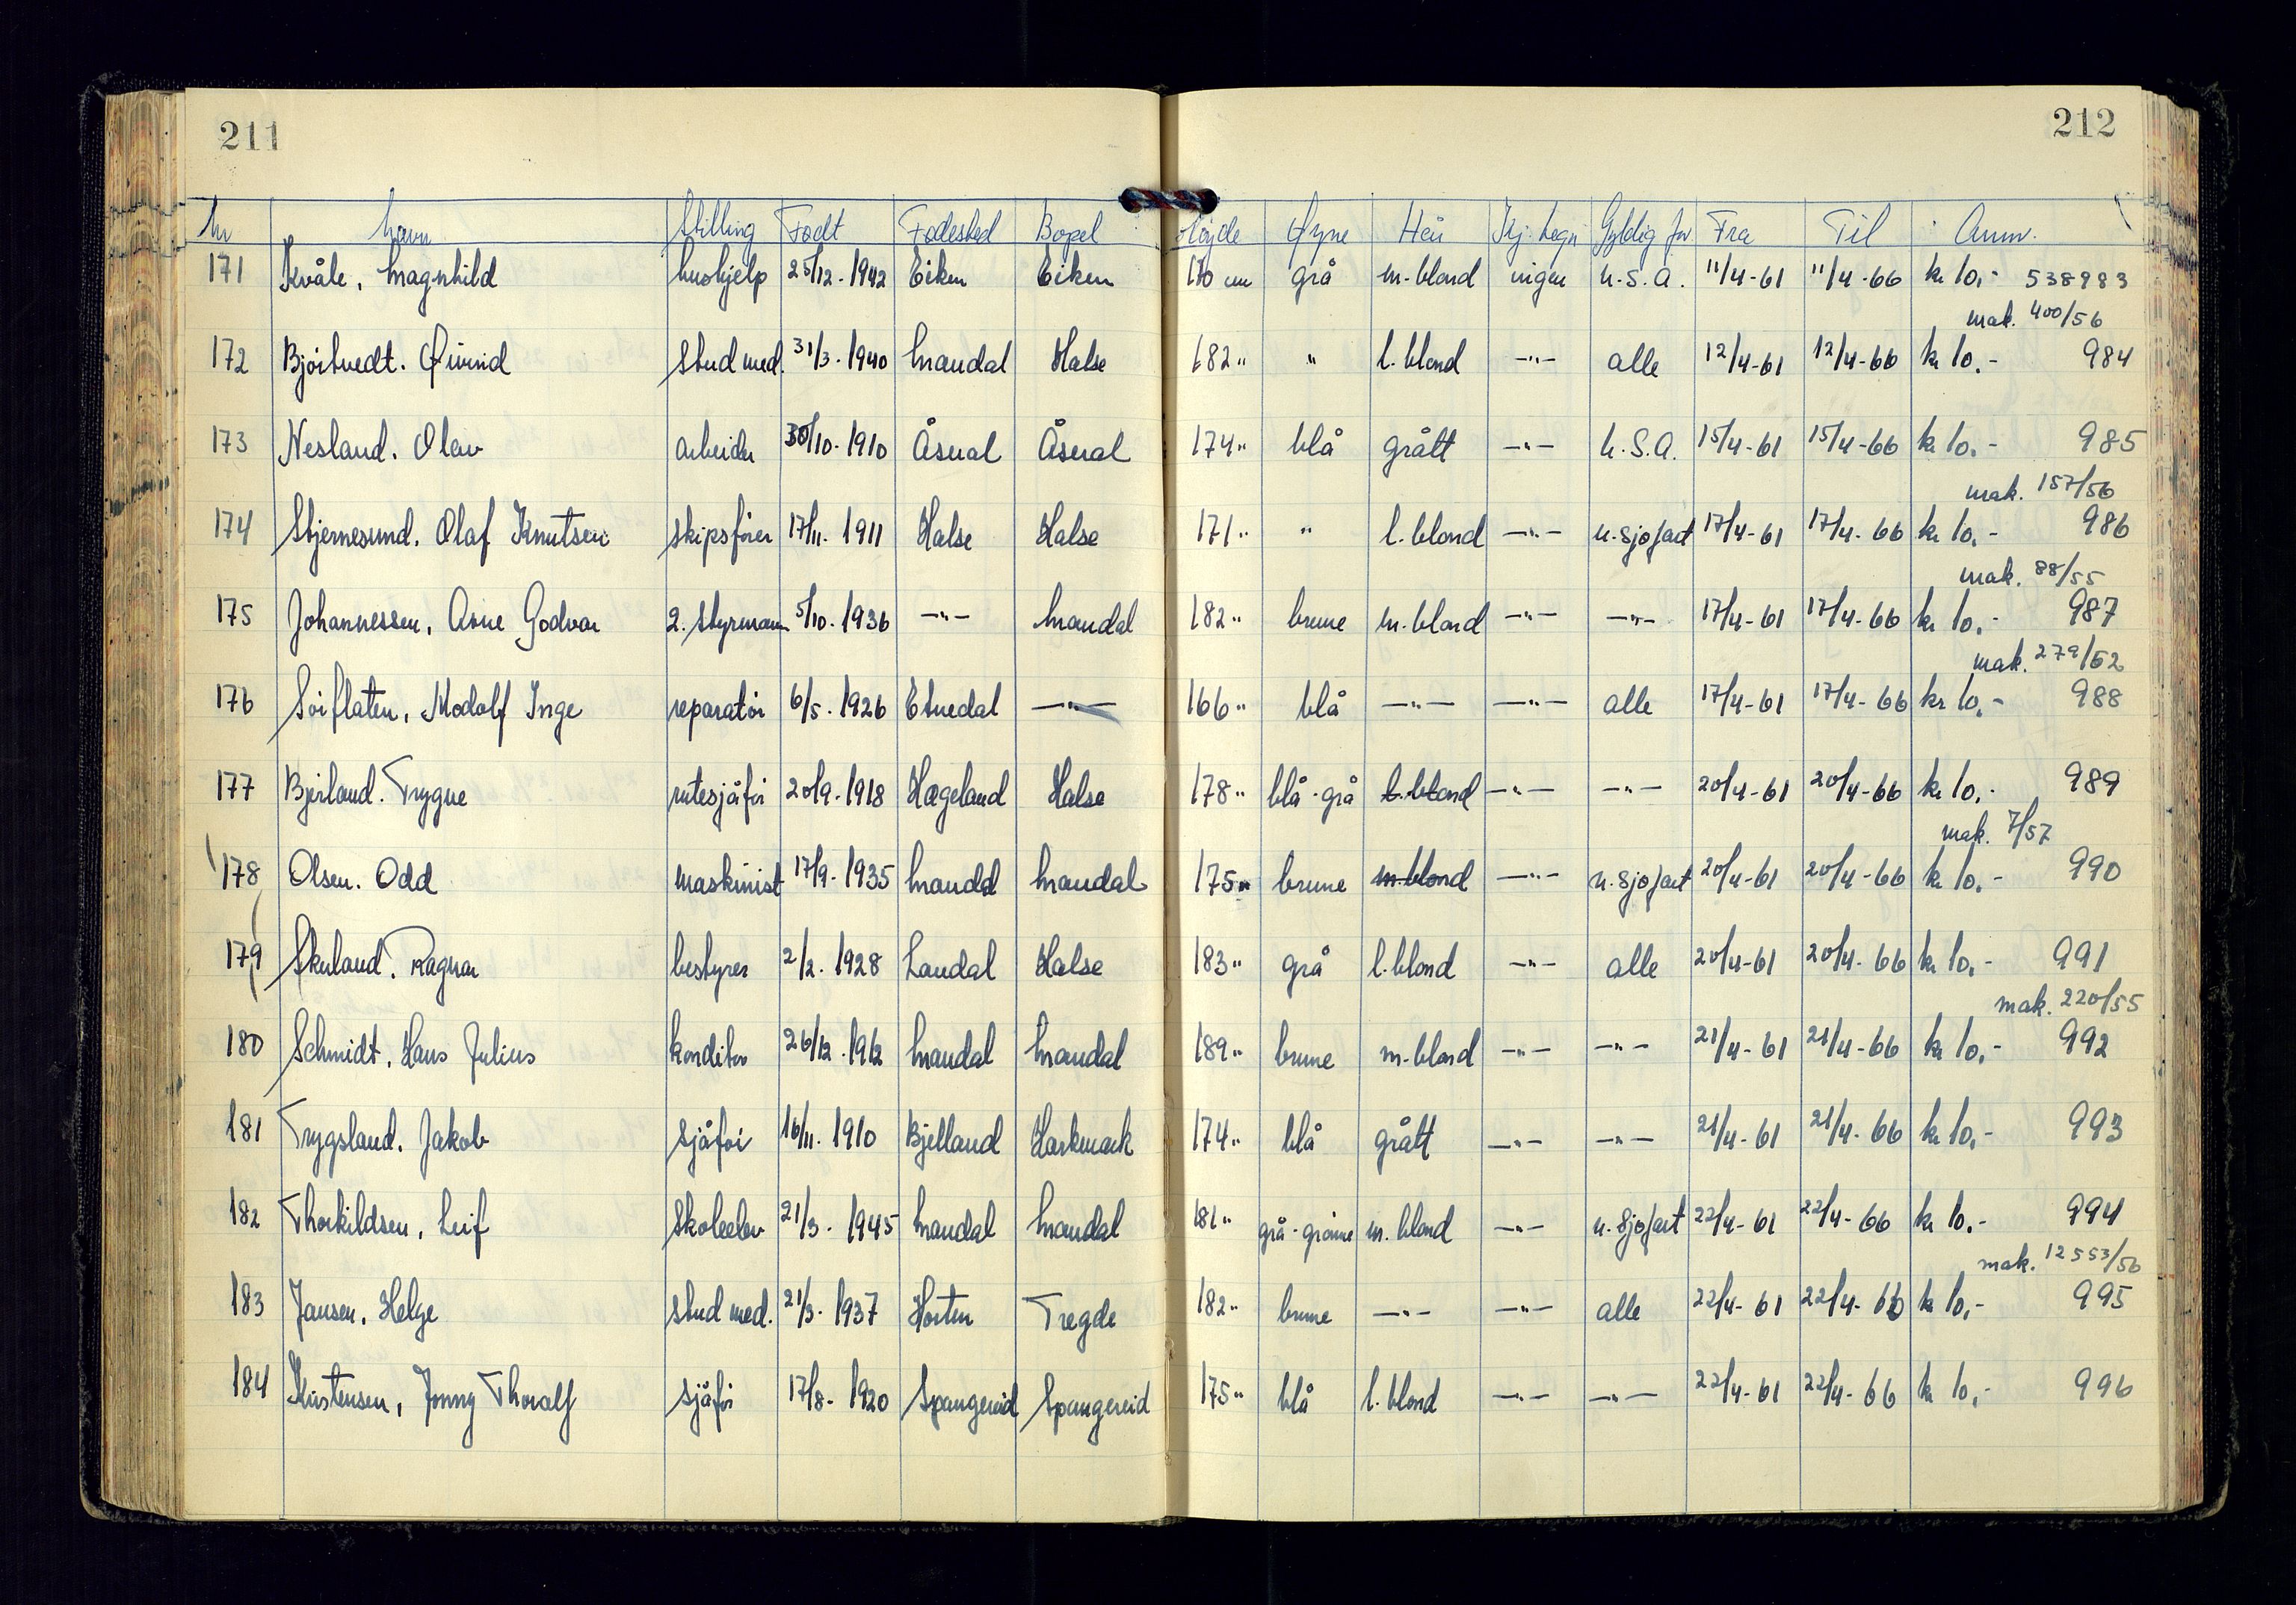 211
212
Nr Navn Stilling Født Fødested Bopel Høyde Øyne Hår Kj. tegn Gyldig for Fra Til Anm.
171 Kvåle, Magnhild hushjelp 25/12-1942 Eiken Eiken 170 cm grå m-blond ingen U.S.A. 11/4-61 11/4-66 kr 10,- 538983
mak. 400/56
172 Bjørtvedt. Øivind stud med. 31/3-1940 Mandal Halse 182" " l. blond -"- alle 12/4-61 12/4-66 kr 10.- 984
173 Nesland. Olav arbeider 30/10-1910 Åseral Åseral 174" blå grått -"- U.S.A. 15/4-61 15/4-66 kr 10.- 985
mak. 157/56
174 Stjernesund. Olaf Knutsen skipsfører 17/11-1911 Halse Halse 171" " l. blond -"- u. sjøfart 17/4-61 17/4-66 kr 10.- 986
mak. 88/55
175 Johannessen, Arne Godvar 2. styrmann 5/10-1936 -"- Mandal 182" brune m. blond -"- -"- 17/4-61 17/4-66 kr 10.- 987
mak. 279/52
176 Sørflaten, Modolf Inge reparatør 6/5-1926 Etnedal -"- 166" blå -"- -"- alle 17/4-61 17/4-66 kr 10,- 988
177 Bjerland. Trygve rutesjåfør 20/9-1918 Hægeland Halse 178" blå-grå l. blond -"- -"- 20/4-61 20/4-66 kr 10,- 989
mak. 7/57
178 Olsen. Odd maskinist 17/9-1935 Mandal Mandal 175" brune m-blond -"- u. sjøfart 20/4-61 20/4-66 kr 10.- 990
179 Skuland. Ragnar bestyrer 2/2-1928 Laudal Halse 183" grå l. blond -"- alle 20/4-61 20/4-66 kr 10,- 991
mak. 220/55
180 Schmidt, Hans Julius konditor 26/12-1912 Mandal Mandal 189" brune m-blond -"- -"- 21/4-61 21/4-66 kr 10,- 992
181 Trygsland. Jakob sjåfør 16/11-1910 Bjelland Harkmark 174" blå grått -"- -"- 21/4-61 21/4-66 kr 10,- 993
182 Thorkildsen, Leif skoleelev 21/3-1945 Mandal Mandal 181" grå-grønne m. blond -"- u. sjøfart 22/4-61 22/4-66 kr 10.- 994
mak. 12553/56
183 Jansen, Helge stud med. 21/3-1937 Horten Tregde 182" brune -"- -"- alle 22/4-61 22/4-66 kr 10,- 995
184 Kristensen, Jonny Thoralf sjåfør 17/8-1920 Spangereid Spangereid 175" blå l. blond -"- -"- 22/4-61 22/4-66 kr 10,- 996